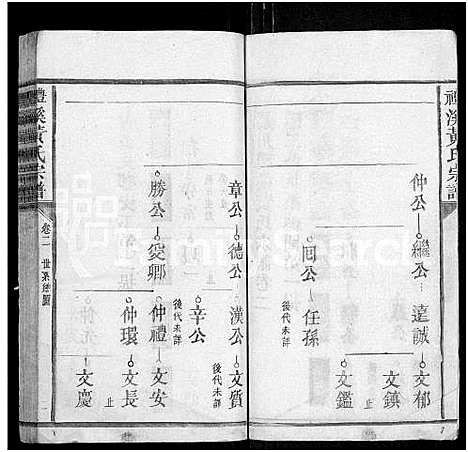 禮溪黃氏宗譜
仲公 繼公 達誠 文郁
文鎮
止
文鑑
回公 任孫
後代未詳
章公 德公 漢公 文質
後代未詳
辛公
後代未詳
勝公 愛卿 仲禮 文安
仲環 文長
止
文慶
禮溪黃氏宗譜
卷二
世系總圖